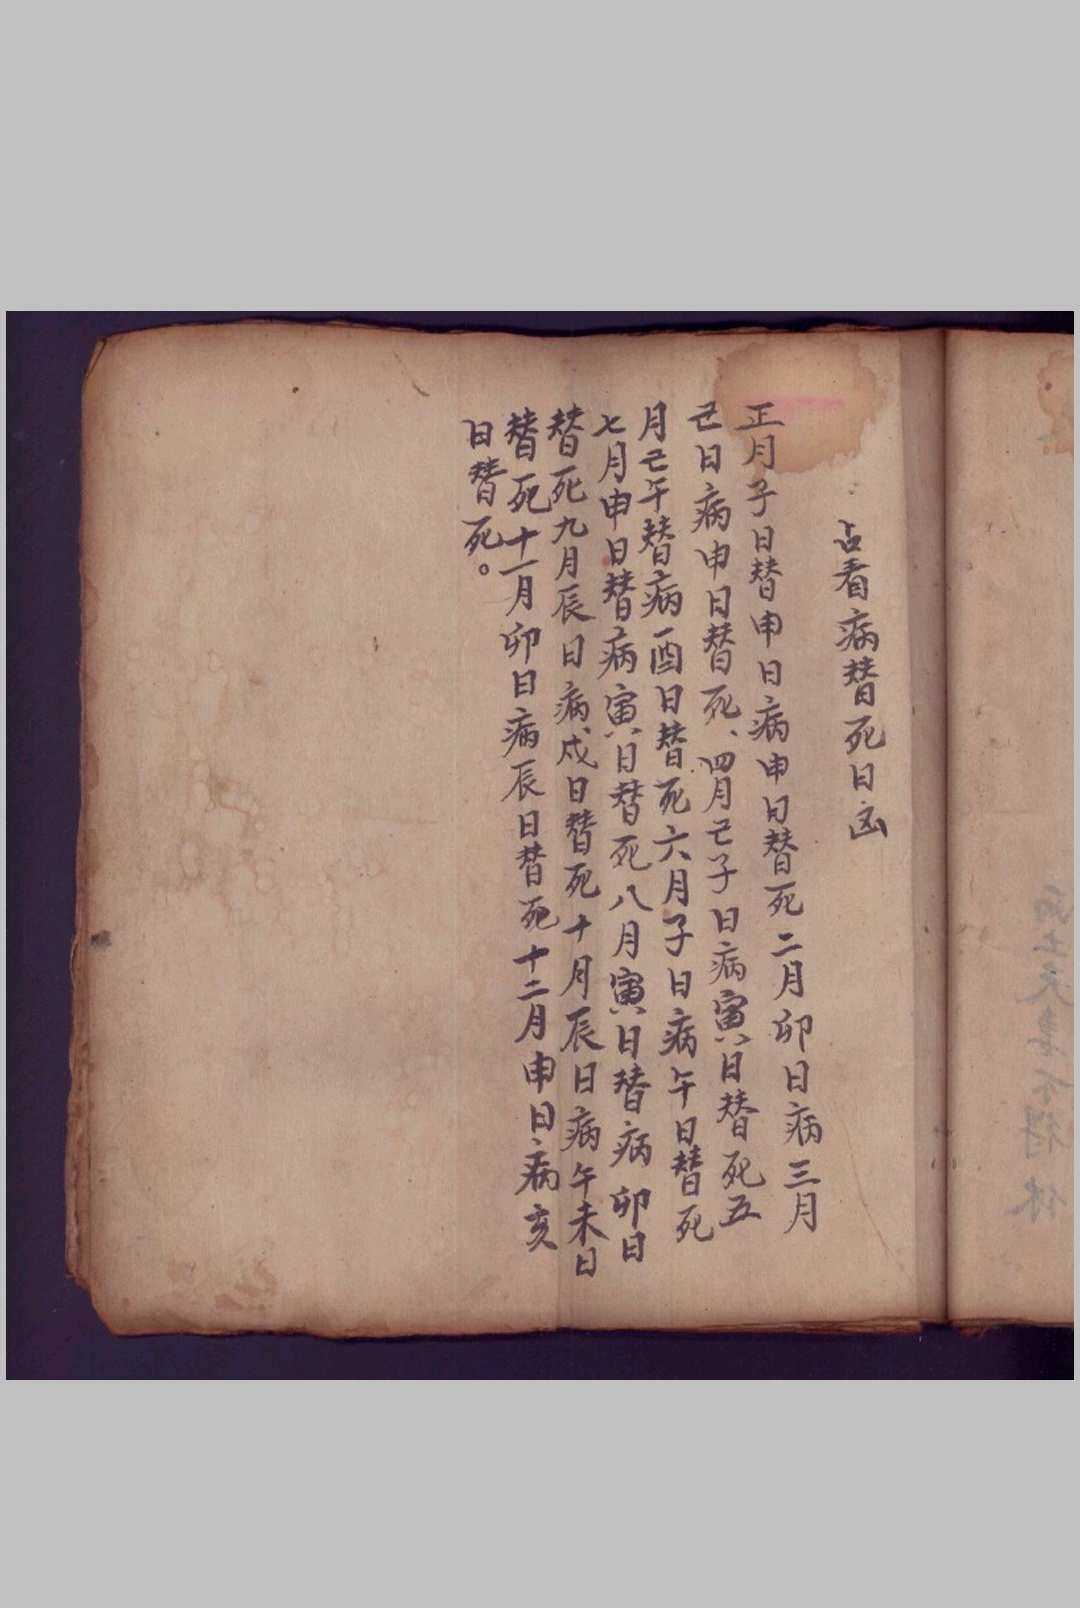 占看病替死日凶
正月子日替申日病申日替死二月卯日病三月
己日病申日替死、四月己子日病寅日替死五
月己午替病酉日替死六月子日病午日替死
七月申日替病寅日替死八月寅日替病卯日
替死九月辰日病、戍日替死十月辰日病午未日
替死十一月卯日病辰日替死十二月申日病亥
日替死。